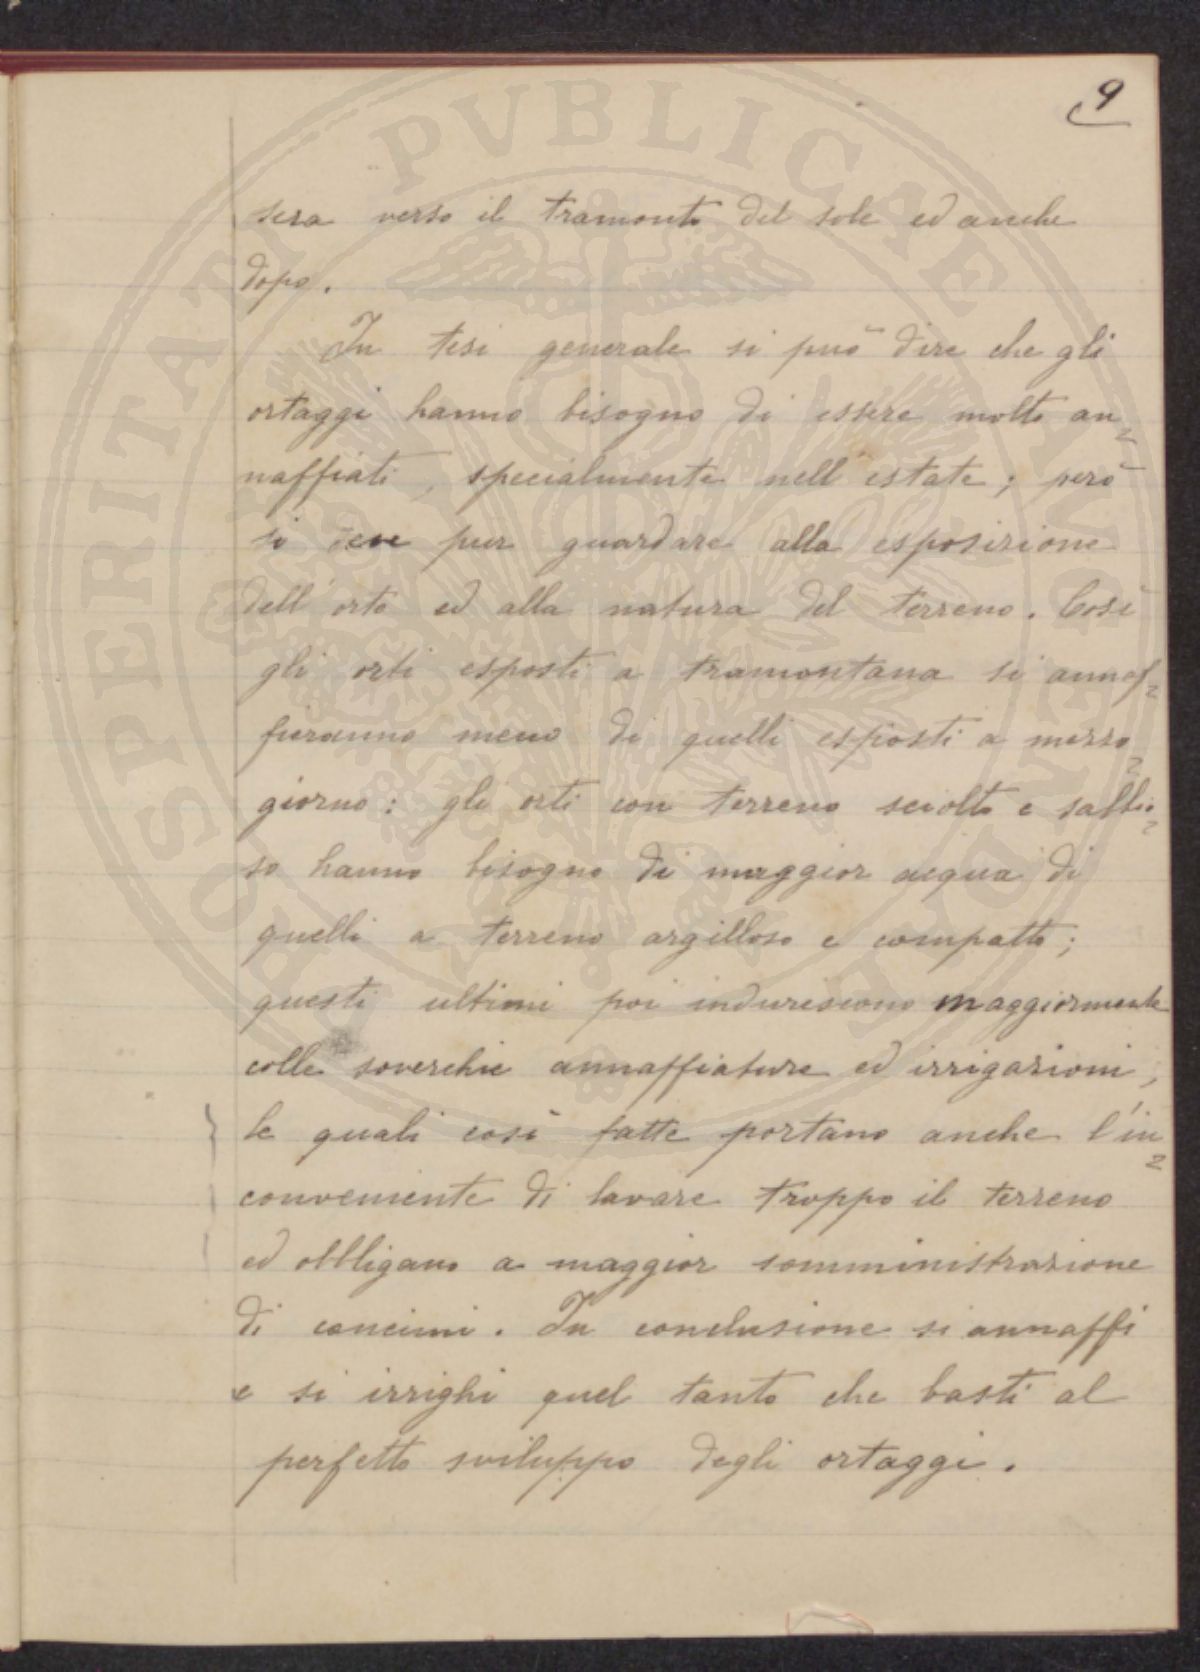 9
sera verso il tramonto del sole ed anche
dopo.
In tesi generale si può dire che gli
ortaggi hanno bisogno di essere molto an=
naffiati, specialmente nell'estate; però
si deve pur guardare alla esposizione
dell'orto ed alla natura del terreno. Così
gli orti esposti a tramontana si annaf=
fieranno meno di quelli esposti a mezzo=
giorno: gli orti con terreno sciolto e sabbio=
so hanno bisogno di maggior acqua di
quelli a terreno argilloso e compatto;
questi ultimi poi induriscono maggiormente
colle soverchie annaffiature ed irrigazioni,
le quali così fatte portano anche l'in=
conveniente di lavare troppo il terreno
ed obbligano a maggior somministrazione
di concimi. In conclusione si annaffi
e si irrighi quel tanto che basti al
perfetto sviluppo degli ortaggi.
PROSPERITATI PVBLICAE AVGENDAE